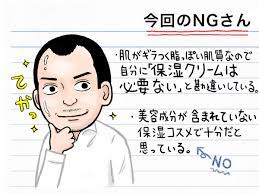 今回のNGさん
・肌がギラつく脂っぽい肌質なので
自分に"保湿クリームは
必要ない"と勘違いしている。
・美容成分が含まれていない
保湿コスメで十分だと
思っている。
NO
てかっ